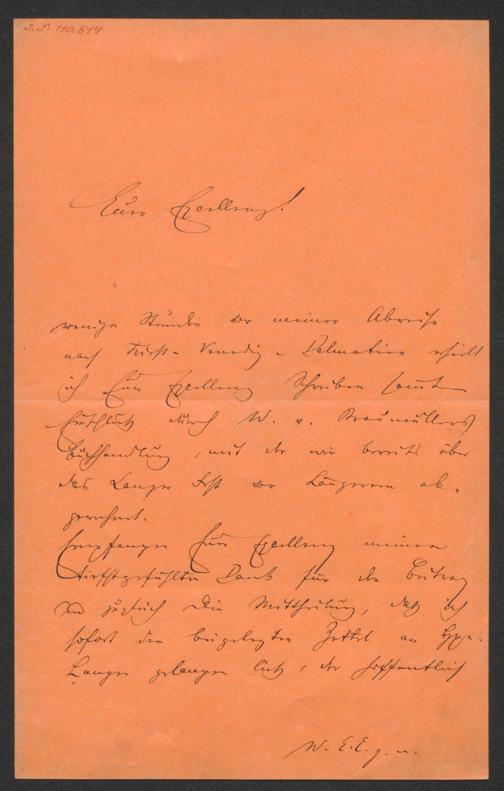 I. N. 110.514
Eure Excellenz!
wenige Stunden vor meiner Abreise
nach Triest - Venedig - Dalmatien erhielt
ich Eure Excellenz Schreiben samt
durch W. v. Braumüllers
Buchhandlung, mit der wir bereits über
das Langer Fest vor Längerem ab-
gerechnet.
Empfangen Eure Excellenz meinen
tiefstgefühlten Dank für den Beitrag
und zugleich die Mittheilung, daß ich
sofort den beigelegten Zettel an
Langer gelangen ließ, der hoffentlich
W. E. E. g. u.